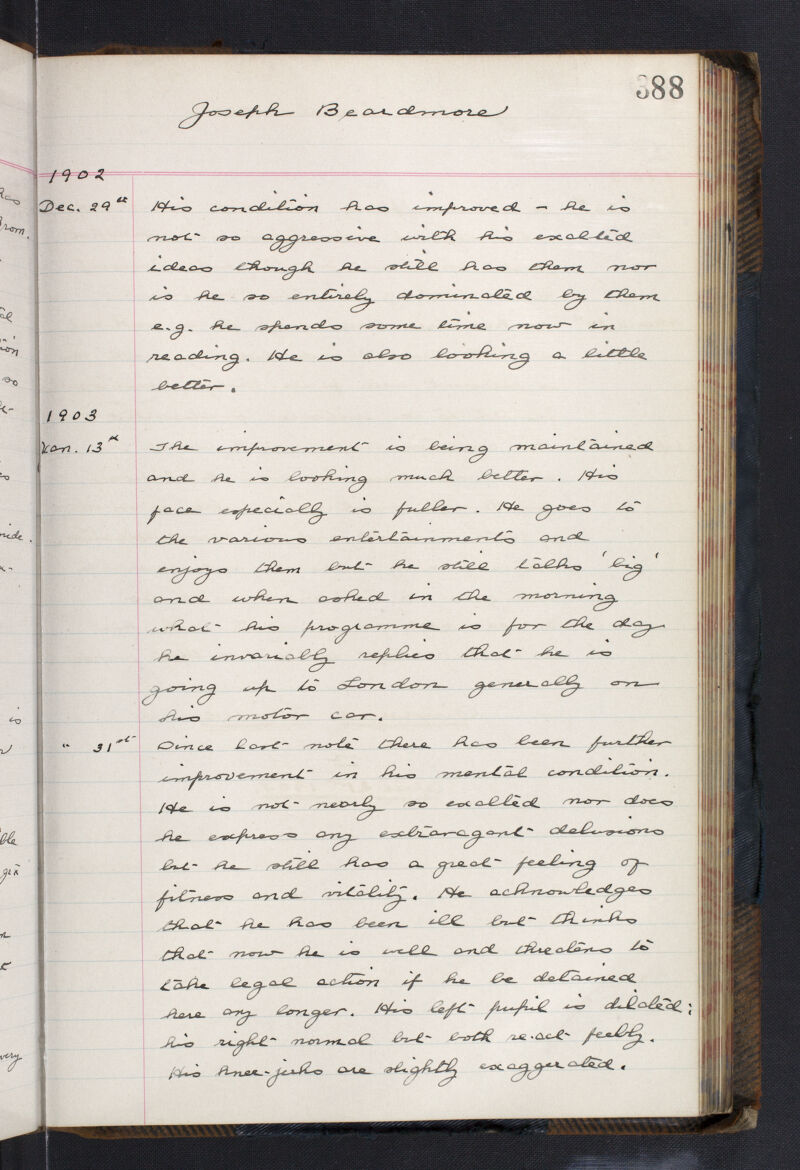 388
Joseph Beardmore
1902
Dec. 29th His condition has improved - he is
not so aggressive with his exalted
ideas though he still has them nor
is he so entirely dominated by them
e.g. he spends some time now in
reading. He is also looking a little
better.
1903
Jan. 13th The improvement is being maintained
and he is looking much better. His
face especially is fuller. He goes to
the various entertainments and
enjoys them but he still talks 'big'
and when asked in the morning
what his programme is for the day
he invariably replies that he is
going up to London generally on
his motor car.
" 31st Since last note there has been further
improvement in his mental condition.
He is not nearly so exalted nor does
he express any extravagant delusions
but he still has a great feeling of
fitness and vitality. He acknowledges
that he has been ill but thinks
that now he is well and threatens to
take legal action if he be detained
here any longer. His left pupil is dilated:
his right normal but both re-act feebly.
His knee-jerks are slightly exaggerated.